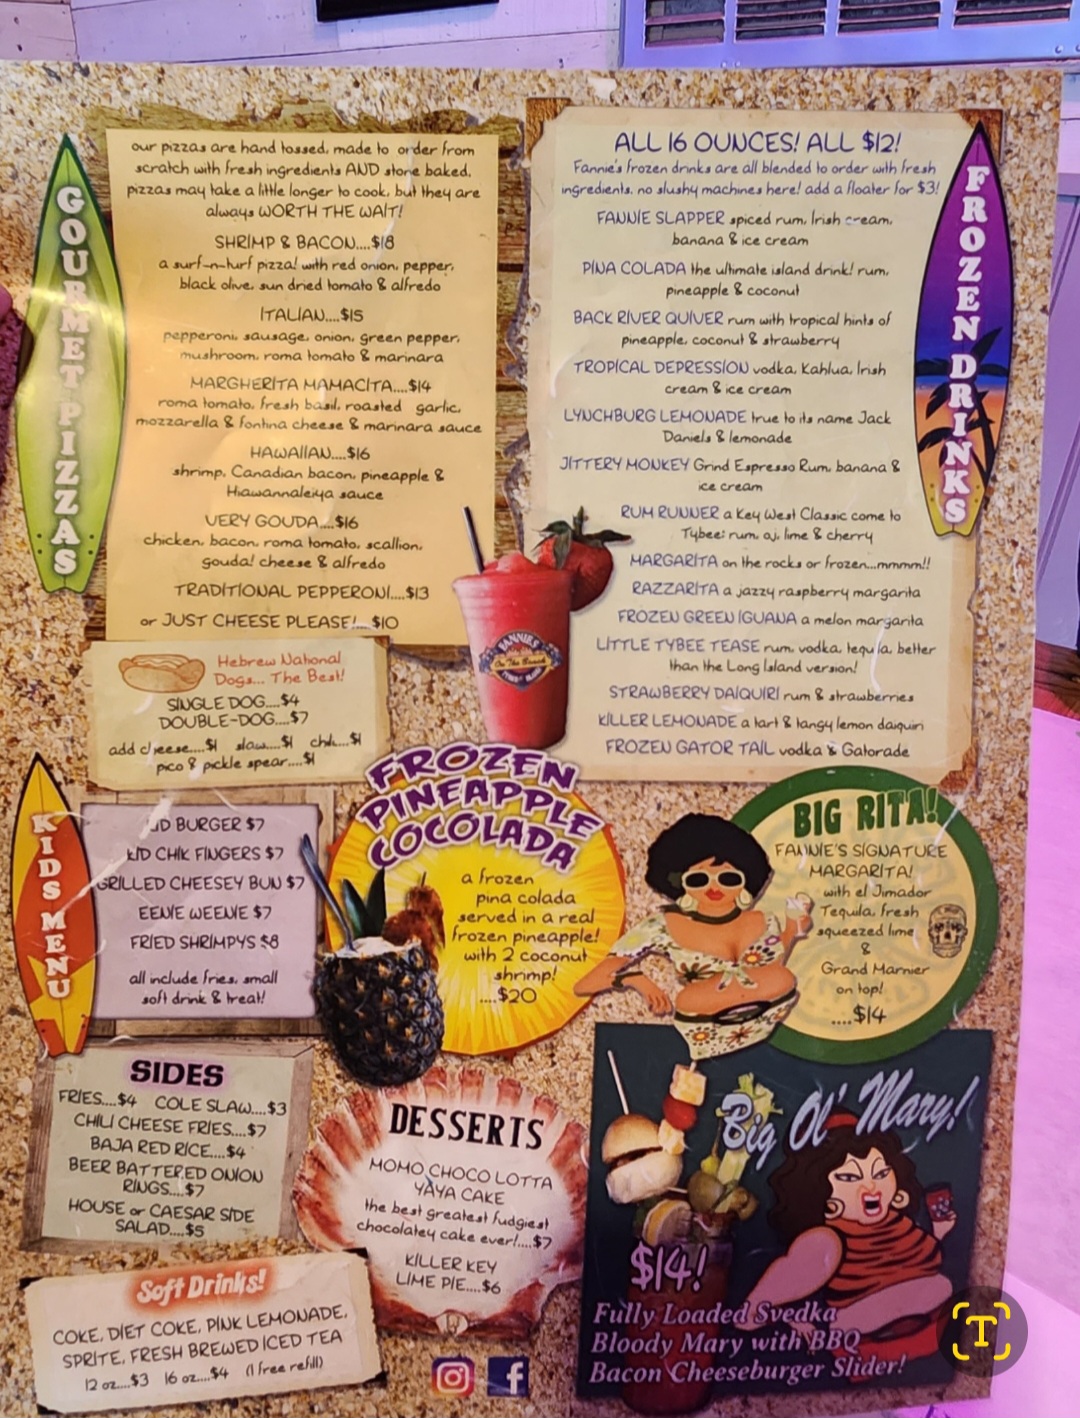 GOURMET PIZZAS
our pizzas are hand tossed, made to order from
scratch with fresh ingredients AND stone baked.
pizzas may take a little longer to cook, but they are
always WORTH THE WAIT!
SHRIMP & BACON....$18
a surf-n-turf pizza! with red onion, pepper,
black olive, sun dried tomato & alfredo
ITALIAN....$15
pepperoni, sausage, onion, green pepper,
mushroom, roma tomato & marinara
MARGHERITA MAMACITA....$14
roma tomato, fresh basil, roasted garlic,
mozzarella & fontina cheese & marinara sauce
HAWAIIAN....$16
shrimp, Canadian bacon, pineapple &
Hiawannaleiya sauce
VERY GOUDA....$16
chicken, bacon, roma tomato, scallion,
gouda! cheese & alfredo
TRADITIONAL PEPPERONI....$13
or JUST CHEESE PLEASE!....$10
Hebrew National
Dogs... The Best!
SINGLE DOG....$4
DOUBLE-DOG....$7
add cheese....$1 slaw....$1 chili....$1
pico & pickle spear....$1
FROZEN DRINKS
ALL 16 OUNCES! ALL $12!
Fannie's frozen drinks are all blended to order with fresh
ingredients, no slushy machines here! add a floater for $3!
FANNIE SLAPPER spiced rum, Irish cream,
banana & ice cream
PINA COLADA the ultimate island drink! rum,
pineapple & coconut
BACK RIVER QUIVER rum with tropical hints of
pineapple, coconut & strawberry
TROPICAL DEPRESSION vodka, Kahlua, Irish
cream & ice cream
LYNCHBURG LEMONADE true to its name Jack
Daniels & lemonade
JITTERY MONKEY Grind Espresso Rum, banana &
ice cream
RUM RUNNER a Key West Classic come to
Tybee; rum, oj, lime & cherry
MARGARITA on the rocks or frozen...mmmm!!
RAZZARITA a jazzy raspberry margarita
FROZEN GREEN IGUANA a melon margarita
LITTLE TYBEE TEASE rum, vodka, tequila, better
than the Long Island version!
STRAWBERRY DAIQUIRI rum & strawberries
KILLER LEMONADE a tart & tangy lemon daiquiri
FROZEN GATOR TAIL vodka & Gatorade
FANNIES
On The Beach
KIDS MENU
KID BURGER $7
KID CHIK FINGERS $7
GRILLED CHEESEY BUN $7
EENIE WEENIE $7
FRIED SHRIMPYS $8
all include fries, small
soft drink & treat!
FROZEN
PINEAPPLE
COCOLADA
a frozen
pina colada
served in a real
frozen pineapple!
with 2 coconut
shrimp!
....$20
BIG RITA!
FANNIE'S SIGNATURE
MARGARITA!
with el Jimador
Tequila, fresh
squeezed lime
&
Grand Marnier
on top!
....$14
SIDES
FRIES....$4 COLE SLAW....$3
CHILI CHEESE FRIES....$7
BAJA RED RICE....$4
BEER BATTERED ONION
RINGS....$7
HOUSE or CAESAR SIDE
SALAD....$5
DESSERTS
MOMO CHOCO LOTTA
YAYA CAKE
the best greatest fudgiest
chocolatey cake ever!....$7
KILLER KEY
LIME PIE....$6
Big Ol' Mary!
$14!
Fully Loaded Svedka
Bloody Mary with BBQ
Bacon Cheeseburger Slider!
Soft Drinks!
COKE, DIET COKE, PINK LEMONADE,
SPRITE, FRESH BREWED ICED TEA
12 oz....$3 16 oz....$4 (1 free refill)